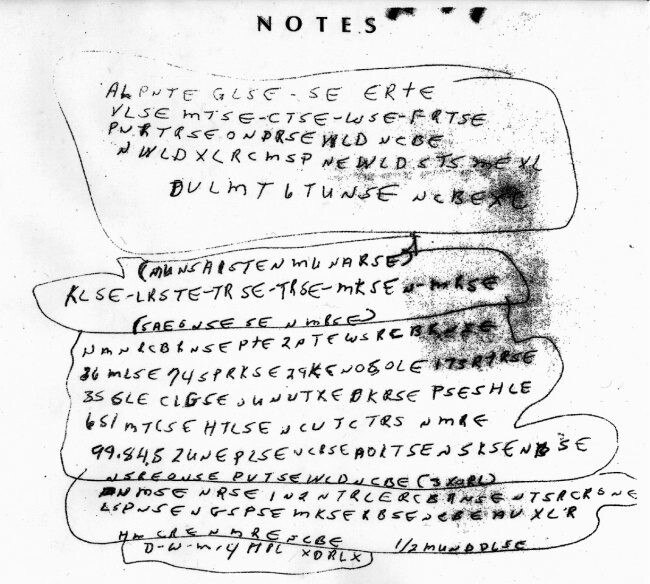 NOTES
ALPNTE GLSE-SE ERTE
VLSE MTSE-CTSE-WSE-FRTSE
PNRTRSEONDRSEWLD NCBE
NWLDXLRCMSP NEWLDSTS MEXL
DULMT6TUNSE NCBEXC
(MUNSARSTENMUNARSE)
KLSE-LRSTE-TRSE-TRSE-MKSEN-MRSE
(SAEGNSESE N MRSE)
NMNRCBRNSEPTE2PTEWSRCBRNSE
36MLSE74SPRKSE29KENOSOLE173RTRSE
35GLE CLGSEOUNUTXEDKRSE PSESHLE
651MTCSE HTLSE NCUTCTRS NMRE
99.84.52UNEPLSENCRSEAOLTSENSKSENBSE
NSREONSE PUTSEWLDNCBE(3XORL)
NMSE NRSE IN2NTRLERCBRNSE NTSRCRONE
LSPNSENGSPSE MKSERBSE NCBE AUXLR
HMCRE NMRE NCBE 1/2MUNDDLSE
D-W-M-4MPL XDRLX